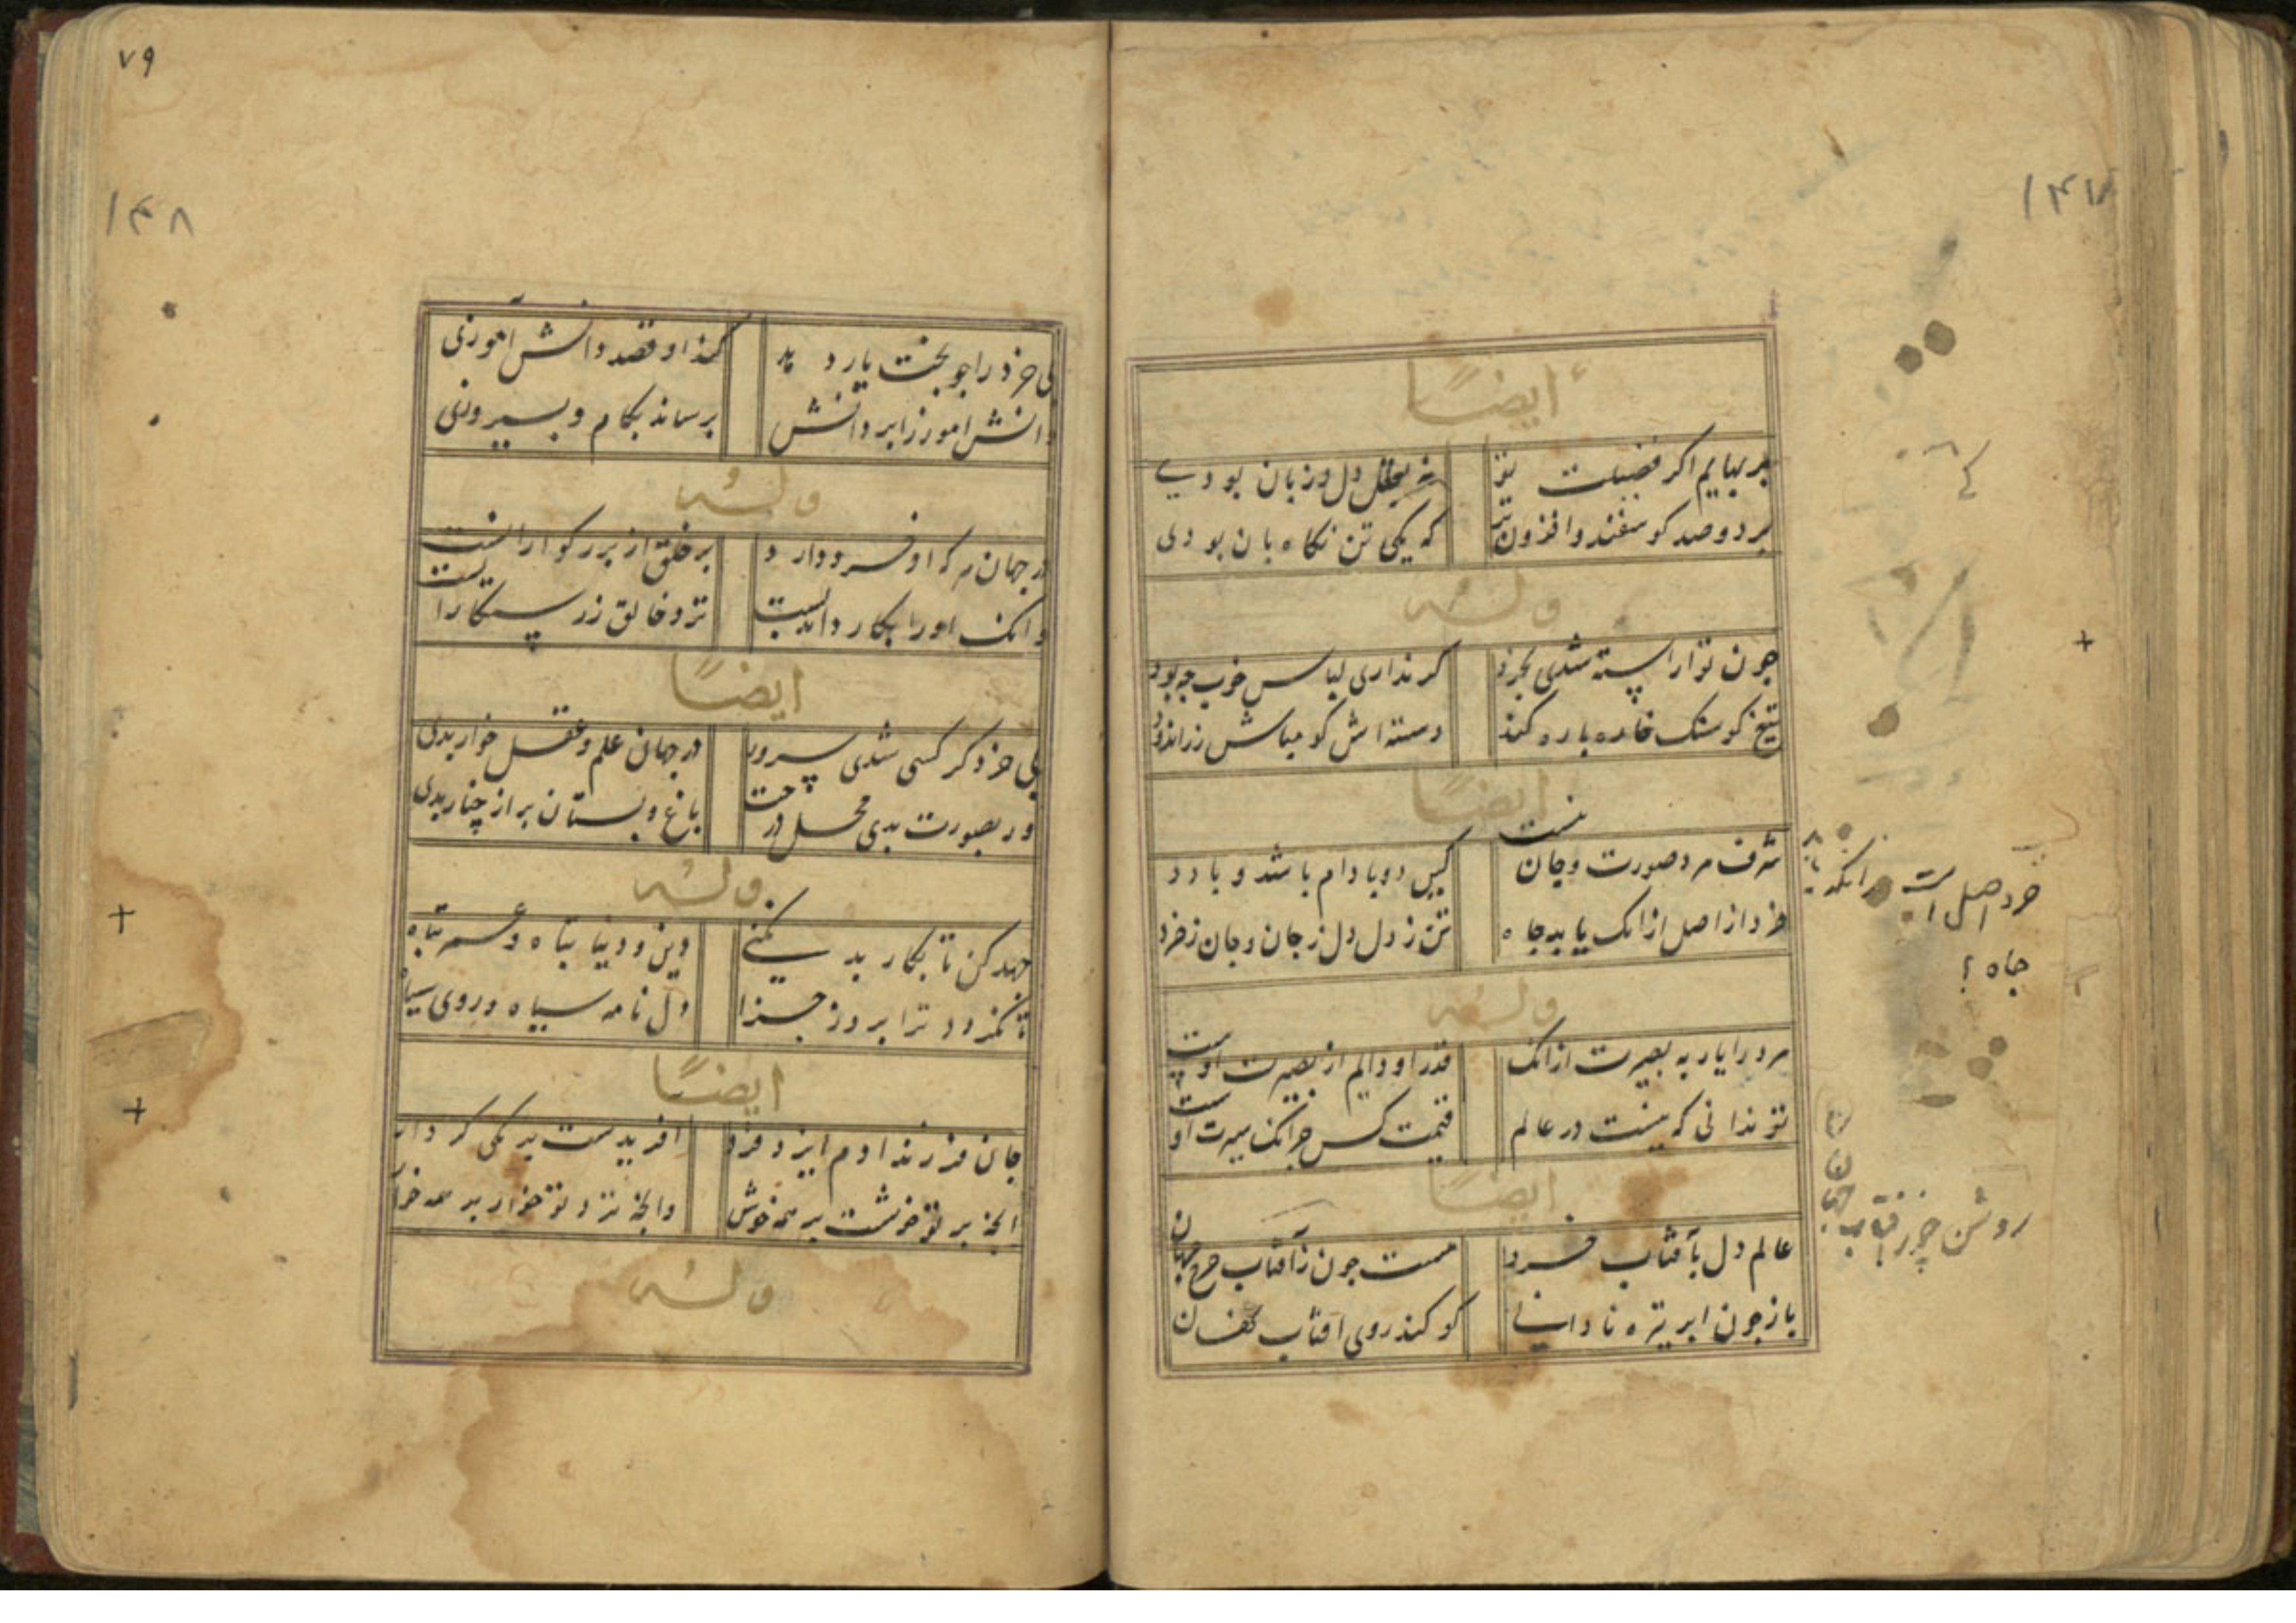 ۱۴۷
ایضاً
بر بهایم اگر فضیلت تو
نه بعقل دل و زبان بودی
بر دو صد کوسفند و افزون تر
که یکی تن نکاه بان بودی
وله
جون تو اراسته شدی بخرد
کر نداری لباس خوب جه بود
تیغ کو سنک خاره باره کند
دسته اش کو مباش زراندود
ایضاً
شرف مرد صورت و جان نیست
کین دو با دام باشد و با دد
خرد از اصل ازانک یابد جاه
تن ز دل دل ز جان و جان ز خرد
وله
مرد را یار به بصیرت ازانک
قدر او دایم از بصیرت اوست
تو ندانی که نیست در عالم
قیمت کس جز انک سیرت اوست
ایضاً
عالم دل بآفتاب خرد
هست جون زآفتاب جرخ جهان
باز جون ابر تیره نادانی
کو کند روی افتاب نهان
خرد اصل است زانکه
جاه ؟
روشن چو ز افتاب جهان
۷۹
۱۴۸
بی خرد را جو بخت یار دهد
کند او قصد دانش آموزی
دانش اموز زابر دانش
برساند بکام و بیروزی
وله
در جهان هر که او خرد دارد
بر خلق از بزرکوارانست
وانک اورا بکار دانیست
نزد خالق ز رستکارانست
ایضاً
بی خرد کر کسی شدی سرور
در جهان علم و عقل خوار بدی
ور بصورت بدی محل درخت
باغ و بستان بر از چنار بدی
وله
جهد کن تا بکار بد نکنی
دین و دنیا تباه و عمر تباه
تا نکردد ترا بروز جزا
دل نامه سیاه و روی سیاه
ایضاً
جان فرزند ادم ایزد فرد
افریدست بر یکی کردار
انج بر تو خوشست بر همه خوش
وانج نزد تو خوار بر همه خوار
وله